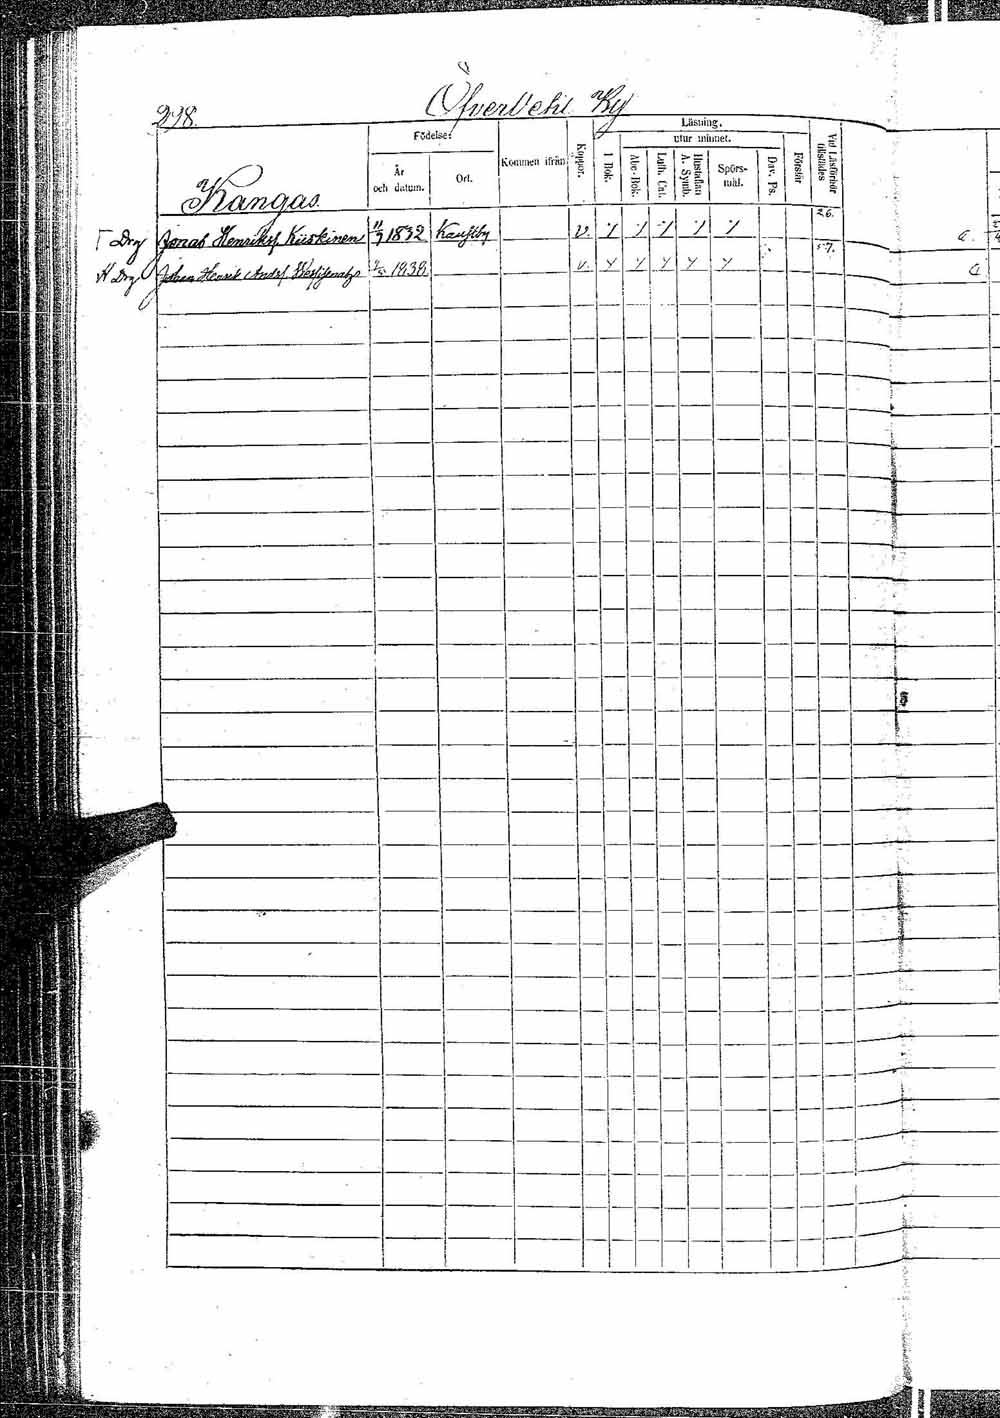 218.
Öfver Vetil By
Kangas.
Födelse:
År och datum.
Ort.
Kommen ifrån
Koppor.
Läsning,
I Bok.
utur minnet.
Abc-Bok.
Luth. Cat.
Hustaflan A. Symb.
Spörsmål.
Dav. Ps.
Förstår
Vid Läsförhör tillstädes
26.
Drg Jonas Henrikss. Kiiskinen 1832 Kaustby v.
57.
Drg Johan Henrik Anders. 1838 v.